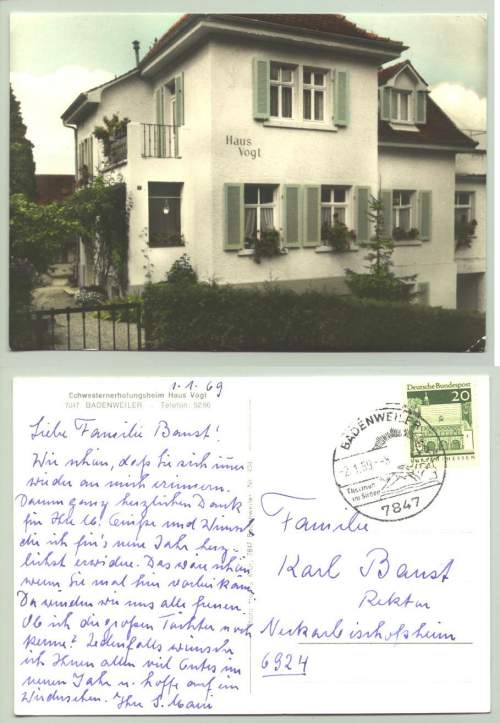 Haus
Vogt
1.1.69
Schwesternerholungsheim Haus Vogt
7847 BADENWEILER - Telefon: 5296
Liebe Familie Banst!
Wie schön, daß Sie sich immer
wieder an mich erinnern.
Darum ganz herzlichen Dank
für Ihre lb. Grüße und Wünsche
die ich für's neue Jahr herz-
lichst erwidre. Das wäre schön
wenn Sie mal hier vorbei kämen.
Da würden wir uns alle freuen.
Ob ich die großen Töchter noch
kenne? Jedenfalls wünsche
ich Ihnen allen viel Gutes im
neuen Jahr u. hoffe auf ein
Wiedersehen. Ihre S. Marie
Deutsche Bundespost
20
HESSEN
BADENWEILER
-2.1.69-8
7847
Familie
Karl Banst
Rektor
Neckarbischofsheim
6924